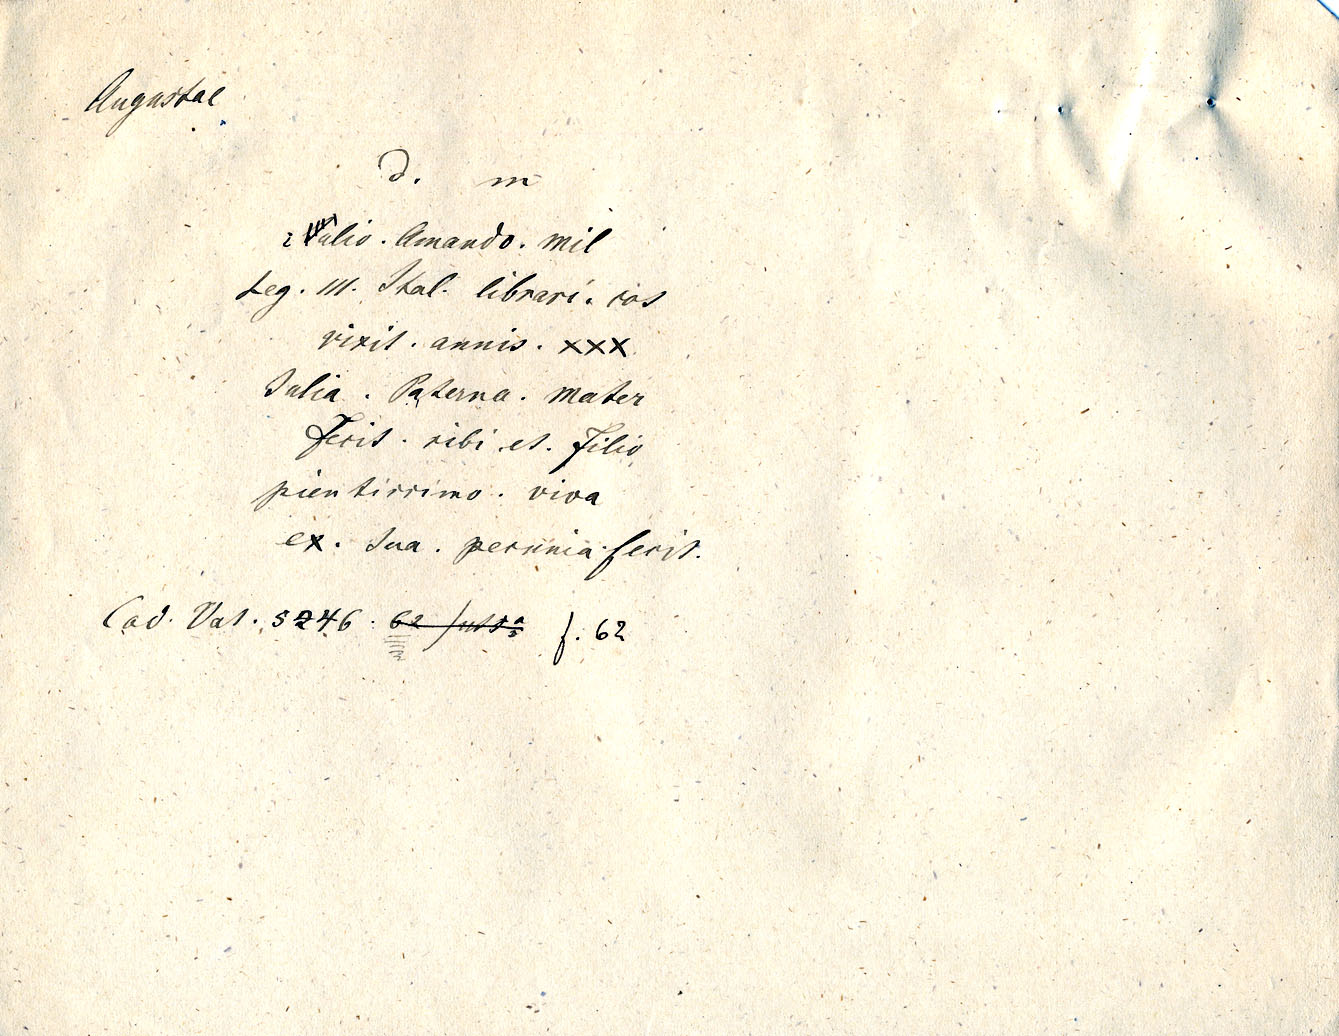 Augustae
D. m
Iulio. Amando. mil
Leg. III. Ital. librari. cos
vixit. annis. xxx
Iulia. Paterna. mater
Fecit. sibi et. Filio
pientissimo. viva
ex. sua. pecunia. fecit.
Cod. Vat. 5246. 62 f. 62